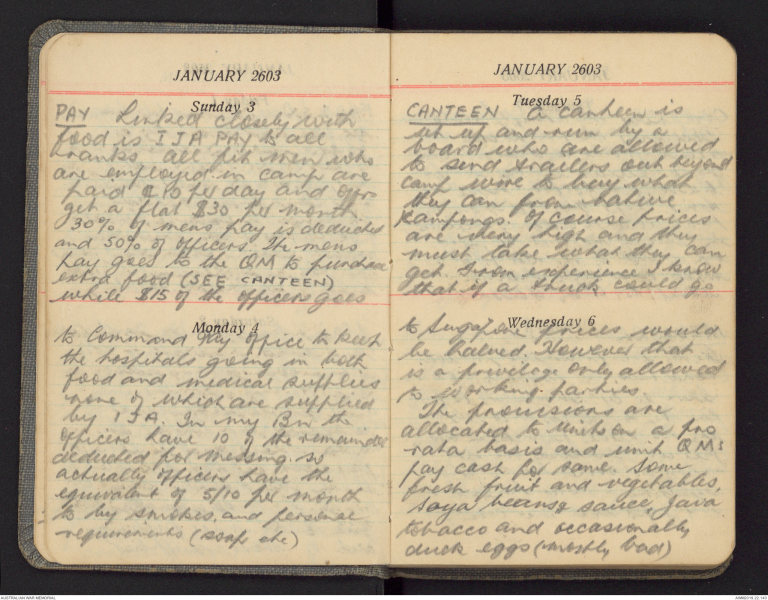 JANUARY 2603
Sunday 3
PAY Linked closely with
food is IJA PAY to all
ranks. all fit men who
are employed in camp are
paid ¢10 per day and offrs
get a flat $30 per month
30% of mens pay is deducted
and 50% of officers. The mens
pay goes to the QM to purchase
extra food (SEE CANTEEN)
while $15 of the officers goes
Monday 4
to Command Pay Office to keep
the hospitals going in both
food and medical supplies
none of which are supplied
by IJA. In my Bn the
officers have 10 of the remainder
deducted for messing. so
actually officers have the
equivalent of 5/10 per month
to by smokes, and personal
requirements (soap etc)
JANUARY 2603
Tuesday 5
CANTEEN A canteen is
set up and run by a
board who are allowed
to send trailers out beyond
camp wire to buy what
they can from native
Kampongs. Of course prices
are very high and they
must take what they can
get. From experience I know
that if a truck could go
Wednesday 6
to Singapore prices would
be halved. However that
is a privilege only allowed
to working parties.
The provisions are
allocated to units on a pro
rata basis and unit QMs
pay cash for same. Some
fresh fruit and vegetables,
Soya beans & sauce, Java
tobacco and occasionally
duck eggs (mostly bad)
AUSTRALIAN WAR MEMORIAL